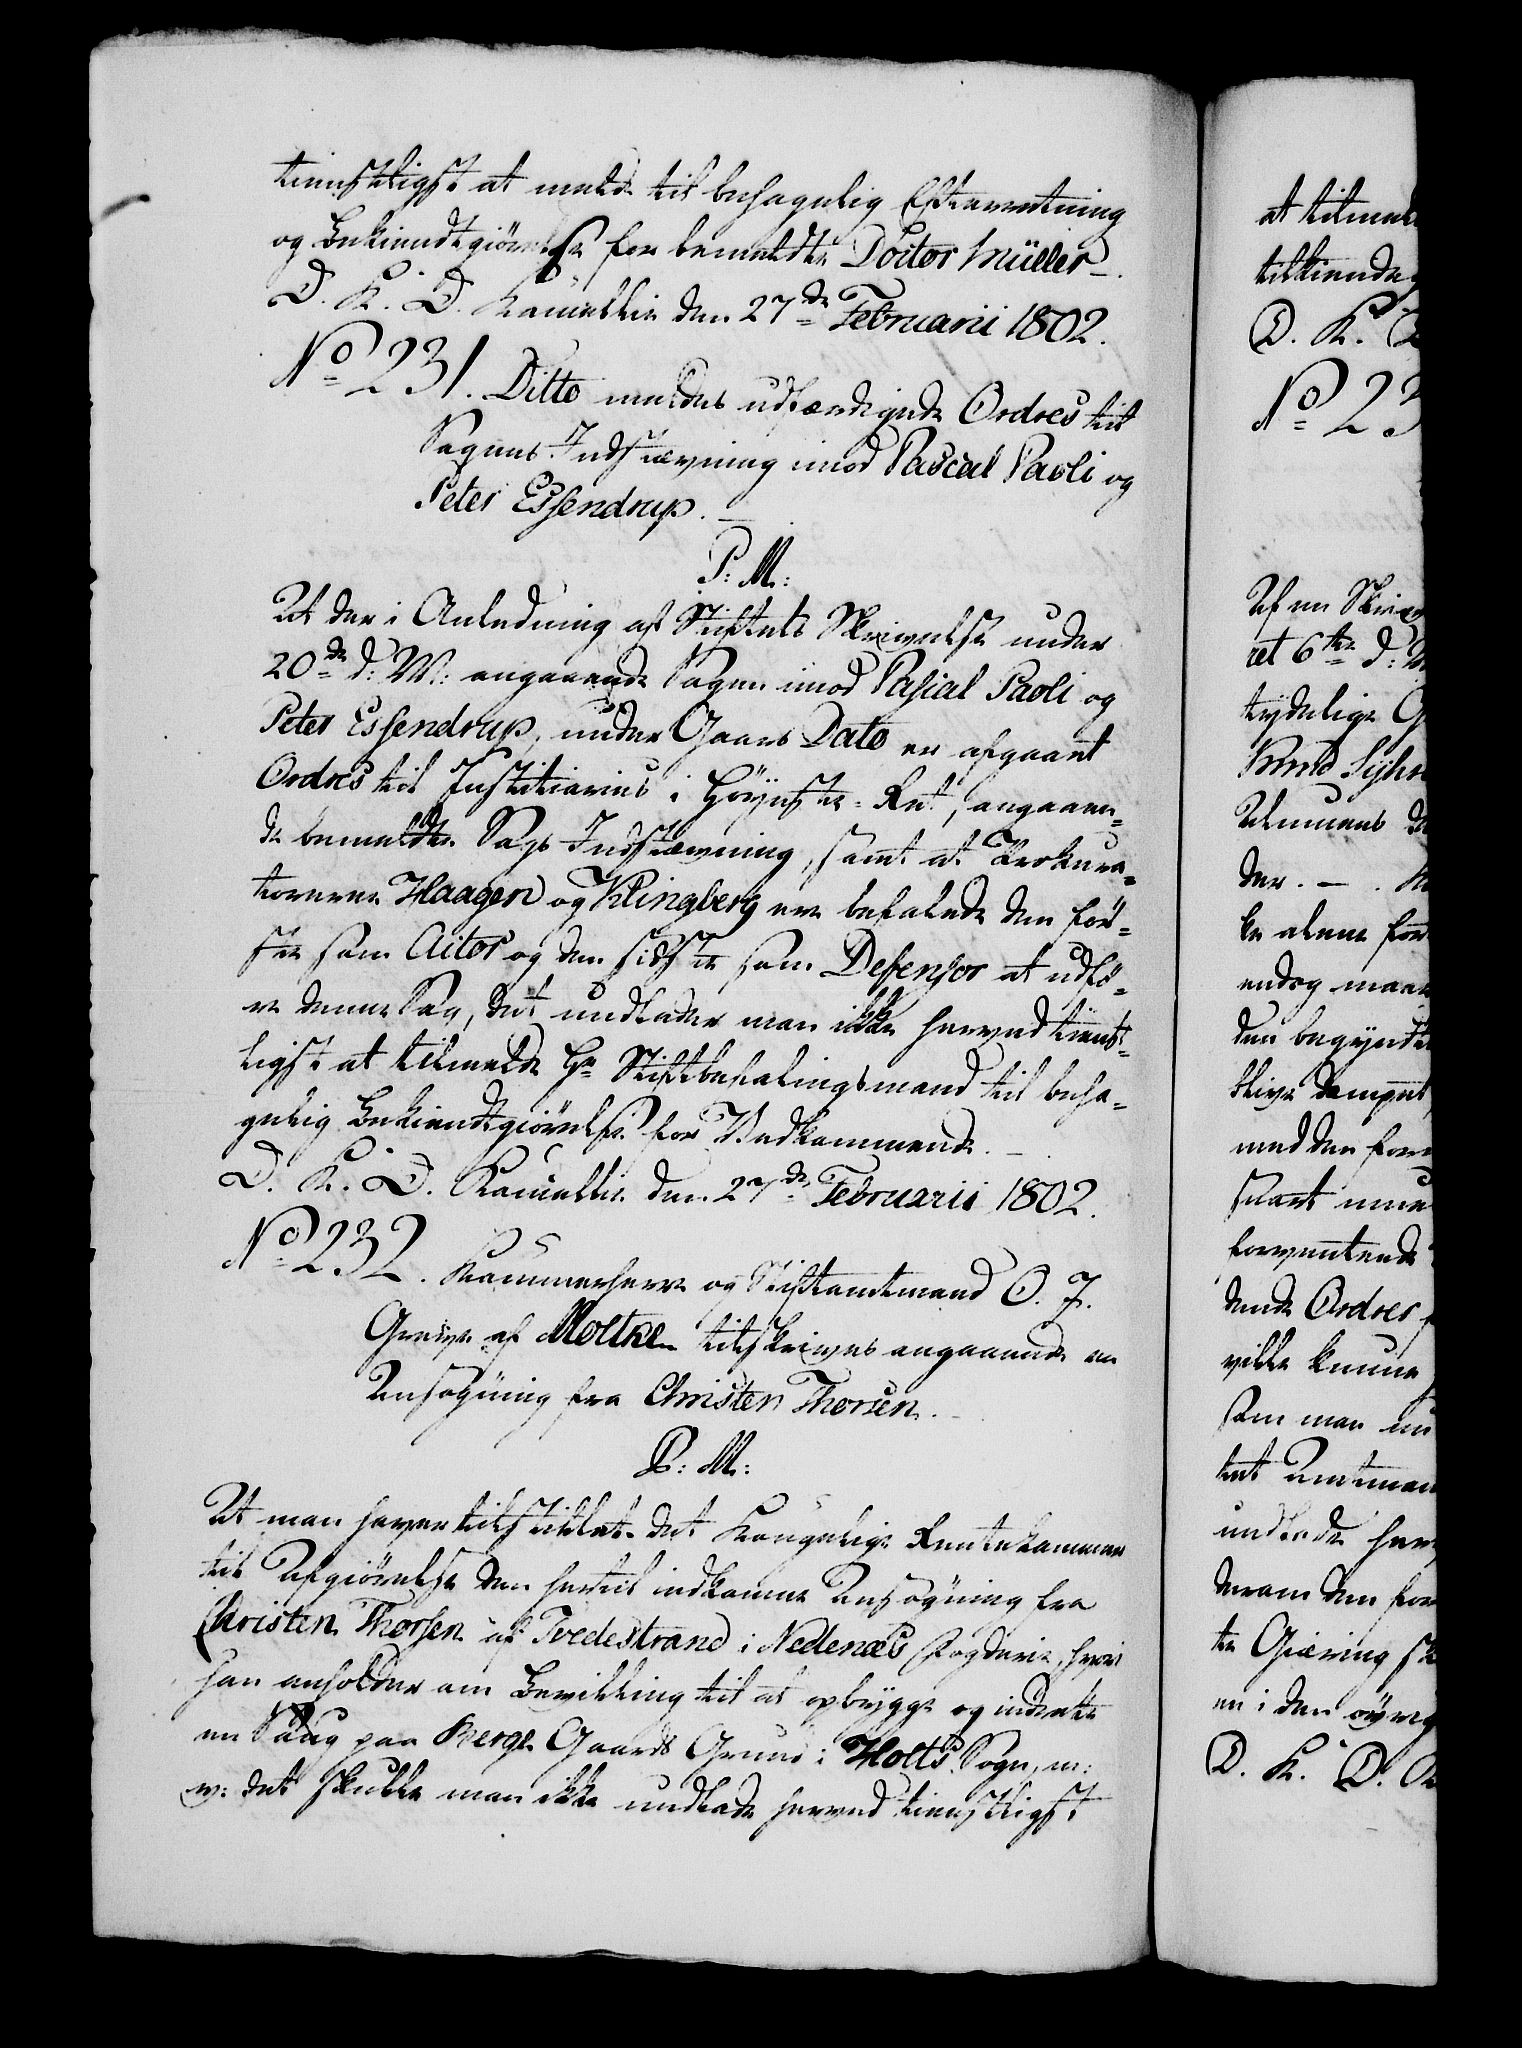 tienstligst at melde til behagelig Efterretning
og Bekiendtgiørelse for bemeldte Doctor Müller.
D. K. D. Kancellie den 27de Februarii 1802.
No 231. Ditto meldes udfærdigede Ordres til
Sagens Indstævning imod Pascal Paoli og
Peter Essendrup.
P: M:
At der i Anledning af Stiftets Skrivelse under
20de d: M: angaaende Sagen imod Pascal Paoli og
Peter Essendrup, under Gaars Dato er afgaaet
Ordres til Justitiarius i Høyeste-Ret, angaaen-
de bemeldte Sags Indstævning, samt at Prokura-
torerne Haagen og Klingberg ere befalede den før-
ste som Actor og den sidste som Defensor at udfø-
re denne Sag, det undlader man ikke herved tienst-
ligst at tilmelde Hr Stiftbefalingsmand til beha-
gelig Bekiendtgiørelse for Vedkommende.
D. K. D. Kancellie den 27de Februarii 1802.
No 232. Kammerherre og Stiftamtmand O. J.
Greve af Moltke tilskrives angaaende en
Ansøgning fra Christen Thorsen.
P: M:
At man haver tilstillet det Kongelige Rentekammer
til Afgiørelse den hertil indkomne Ansøgning fra
Christen Thorsen af Tvedestrand i Nedenæs Fogderie, hvori
han anholder om Bevilling til at opbygge og indrette
en Saug paa Berge Gaards Grund i Holts Sogn, m:
v: det skulle man ikke undlade herved tienstligst
at tilmel
tilkiende
D. K. D
No 23
Af en Skriv
ret 6te d: M
tydelige
Knud
der.
ke alene for
endog maa
den begyndt
blive dæmpet,
med den for
snart
forventende
dende Ordres
ville kunne
som man
tet Amtman
undlade her
derom den for
te Giæring sk
en i den øvrig
D. K. D. K